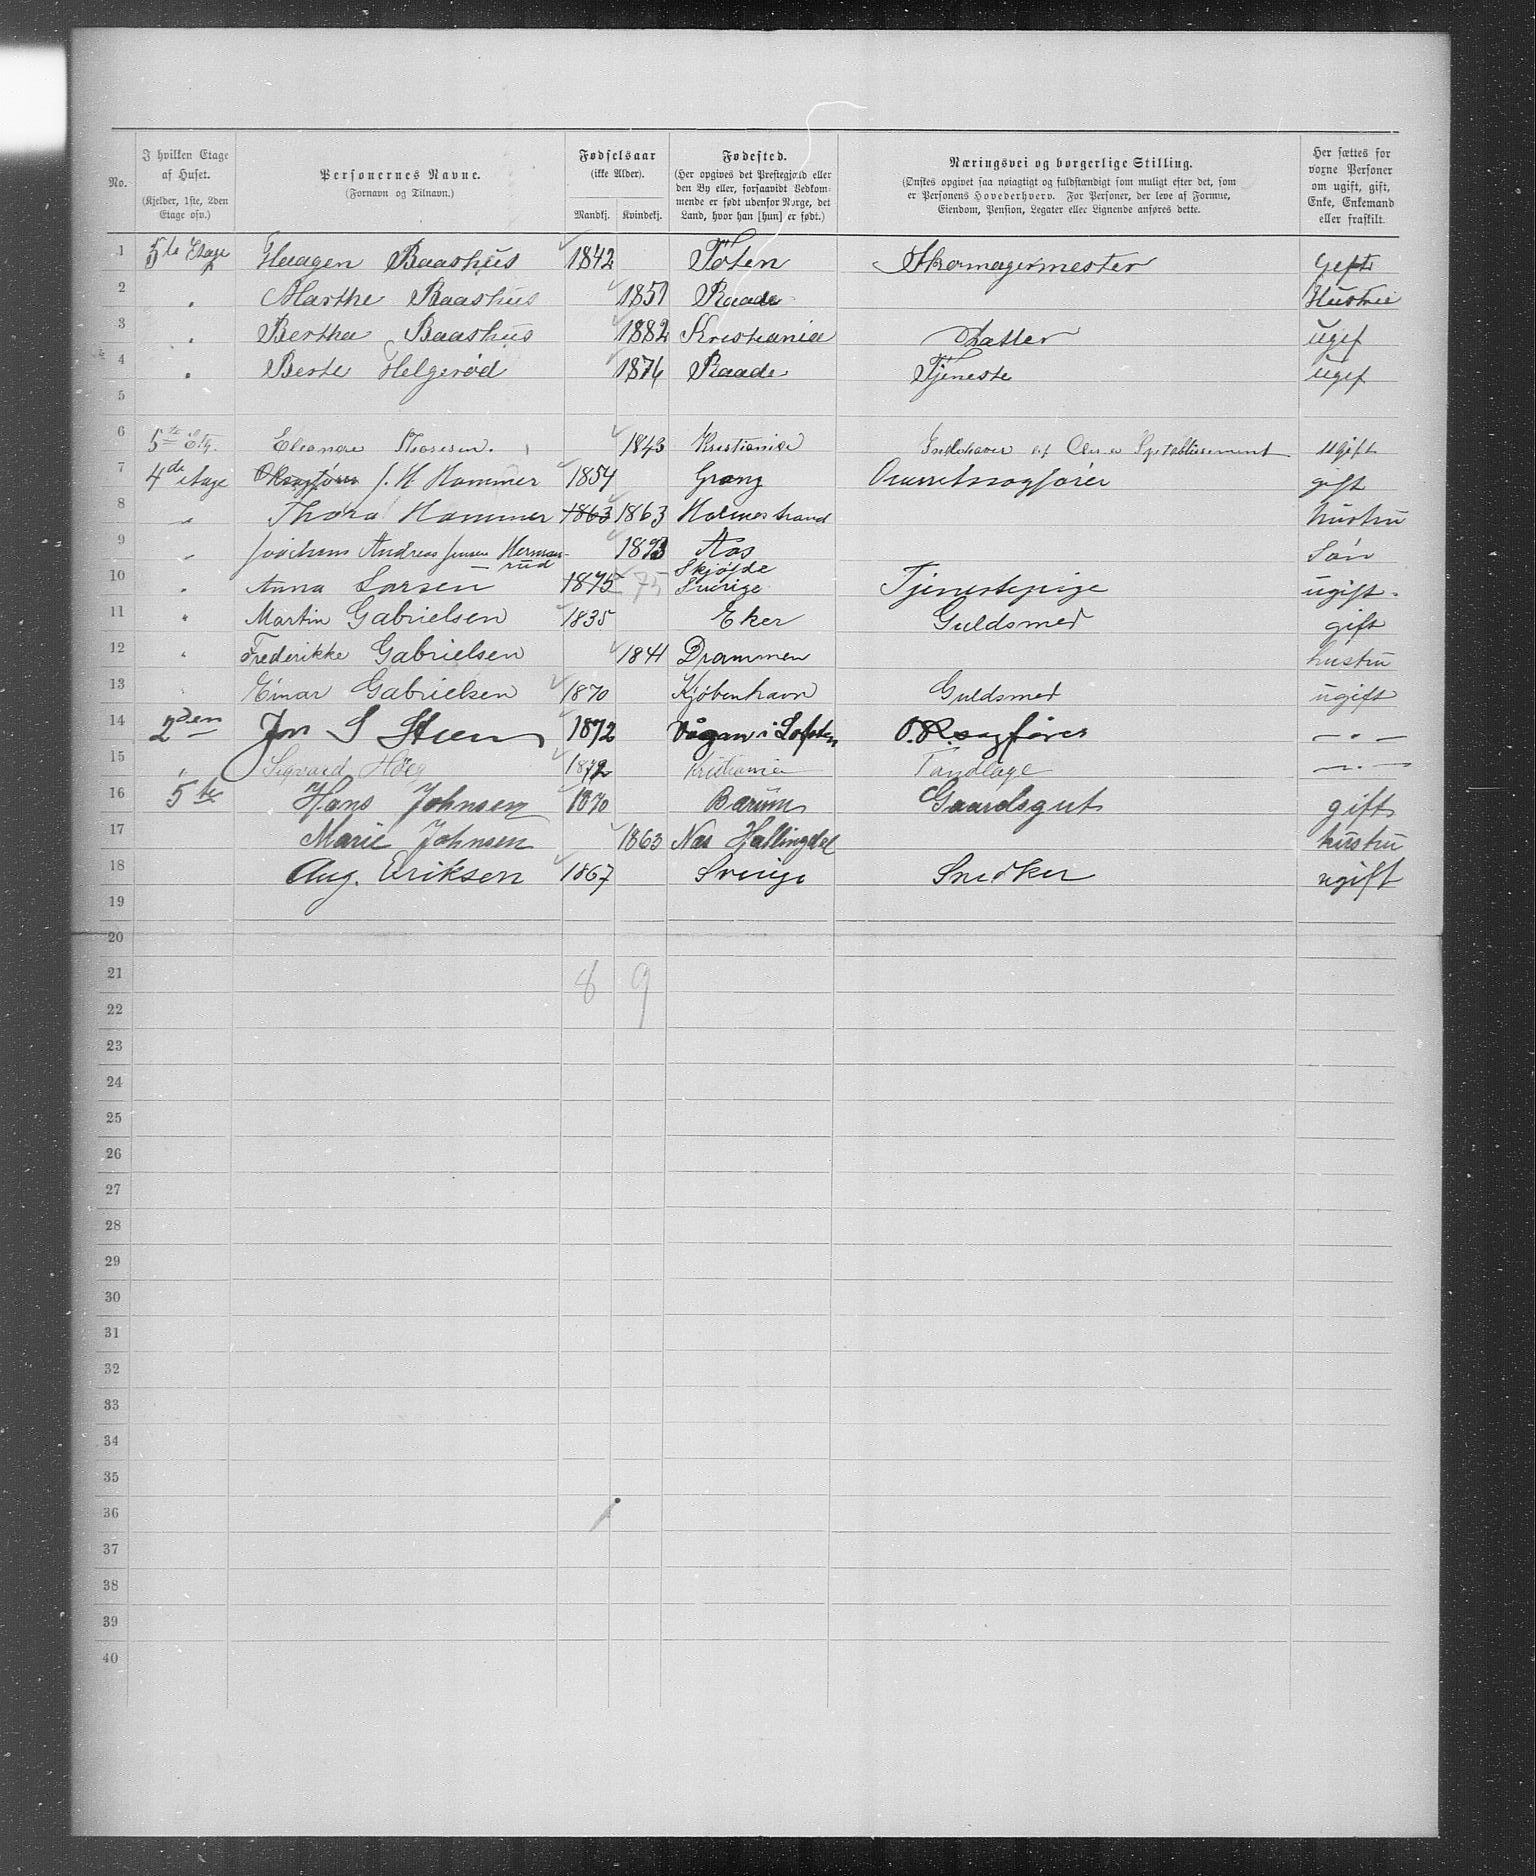 No.
I hvilken Etage af Huset.
(Kjelder, 1ste, 2den Etage osv.)
Personernes Navne.
(Fornavn og Tilnavn.)
Fødselsaar
(ikke Alder).
Mandkj. Kvindekj.
Fødested.
(Her opgives det Prestegjæld eller
den By eller, forsaavidt Vedkom-
mende er født udenfor Norge, det
Land, hvor han [hun] er født.)
Næringsvei og borgerlige Stilling.
(Ønskes opgivet saa nøiagtigt og fuldstændigt som muligt efter det, som
er Personens Hovederhverv. For Personer, der leve af Formue,
Eiendom, Pension, Legater eller Lignende anføres dette.
Her sættes for
voxne Personer
om ugift, gift,
Enke, Enkemand
eller fraskilt.
1 5te Etage Haagen Baashus 1842 Toten Skomagermester Gift
2 " Marthe Baashus 1851 Raade Hustru
3 " Bertha Baashus 1882 Kristiania Datter ugif
4 " Berte Helgerød 1876 Raade Tjeneste ugif
5
6 5te Etg. Eleonore Thoresen. 1843 Kristiania Indehaver af ugift
7 4de etage J. H. Hammer 1854 Gran Overretssagfører gift
8 " Thora Hammer 1863 1863 Holmestrand hustru
9 " Joachim Andreas Jensen Herman-
rud 1893 Aas Søn
10 " Anna Larsen 1875 75 Skjøfde
Sverige Tjenestepige ugift.
11 " Martin Gabrielsen 1835 Eker Guldsmed gift
12 " Frederikke Gabrielsen 1841 Drammen hustru
13 " Einar Gabrielsen 1870 Kjøbenhavn Guldsmed ugift
14 2den Jon S Steen 1872 Vågan i Lofoten O.R.sagfører — " —
15 " Sigvard Höeg 1872 Kristiania Tandlæge — " —
16 5te Hans Johnsen 1870 Bærum Gaardsgut gift
17 Marie Johnsen 1863 Nes Hallingdal hustru
18 Aug. Eriksen 1867 Sverige Snedker ugift
19
20
21 8 9
22
23
24
25
26
27
28
29
30
31
32
33
34
35
36
37
38
39
40